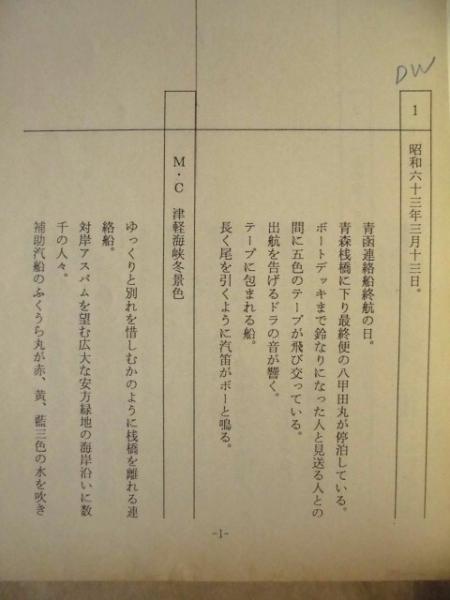 DW
1
昭和六十三年三月十三日。
青函連絡船終航の日。
青森桟橋に下り最終便の八甲田丸が停泊している。
ボートデッキまで鈴なりになった人と見送る人との
間に五色のテープが飛び交っている。
出航を告げるドラの音が響く。
テープに包まれる船。
長く尾を引くように汽笛がボーと鳴る。
M・C 津軽海峡冬景色
ゆっくりと別れを惜しむかのように桟橋を離れる連
絡船。
対岸アスパムを望む広大な安方緑地の海岸沿いに数
千の人々。
補助汽船のふくうら丸が赤、黄、藍三色の水を吹き
-1-